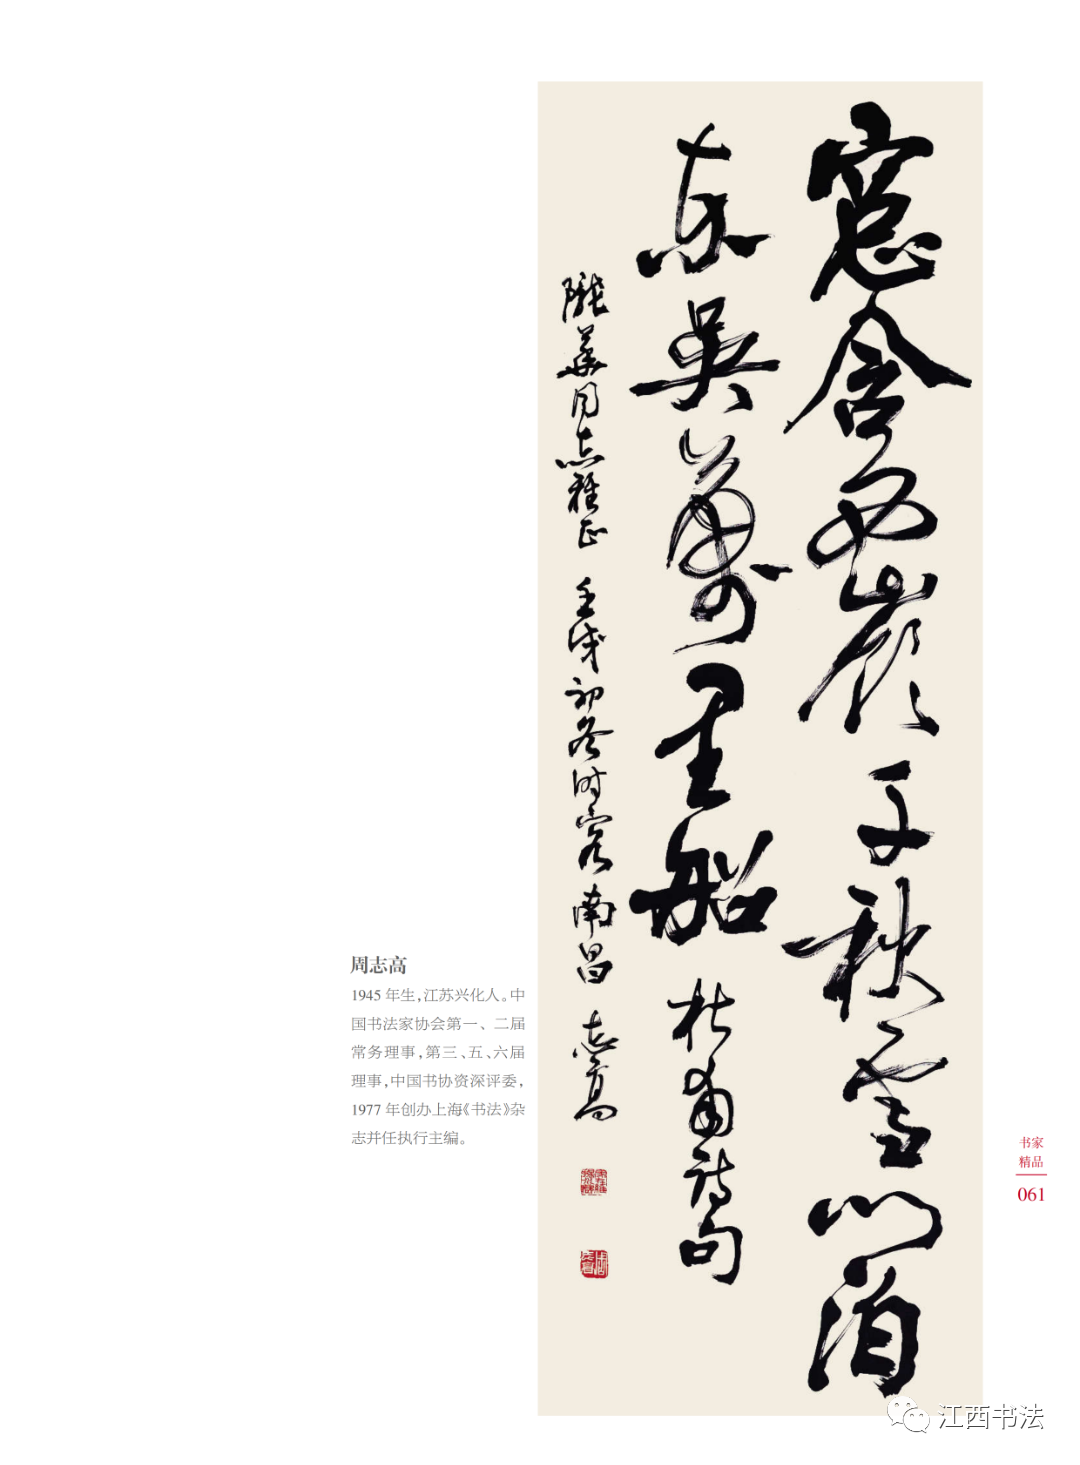 窗含西嶺千秋雪门泊
东吴萬里船 杜甫诗句
隴華同志雅正 壬戌初冬时客南昌 志高
周志高
1945 年生，江苏兴化人。中
国书法家协会第一、二届
常务理事，第三、五、六届
理事，中国书协资深评委，
1977 年创办上海《书法》杂
志并任执行主编。
书家
精品
061
江西书法